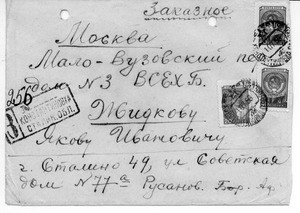 Заказное
Москва
Мало-Вузовский пе
дом N3 ВСЕХБ.
Жидкову
Якову Ивановичу
г. Сталино 49, ул Советская
дом N 77а Русанов.
256